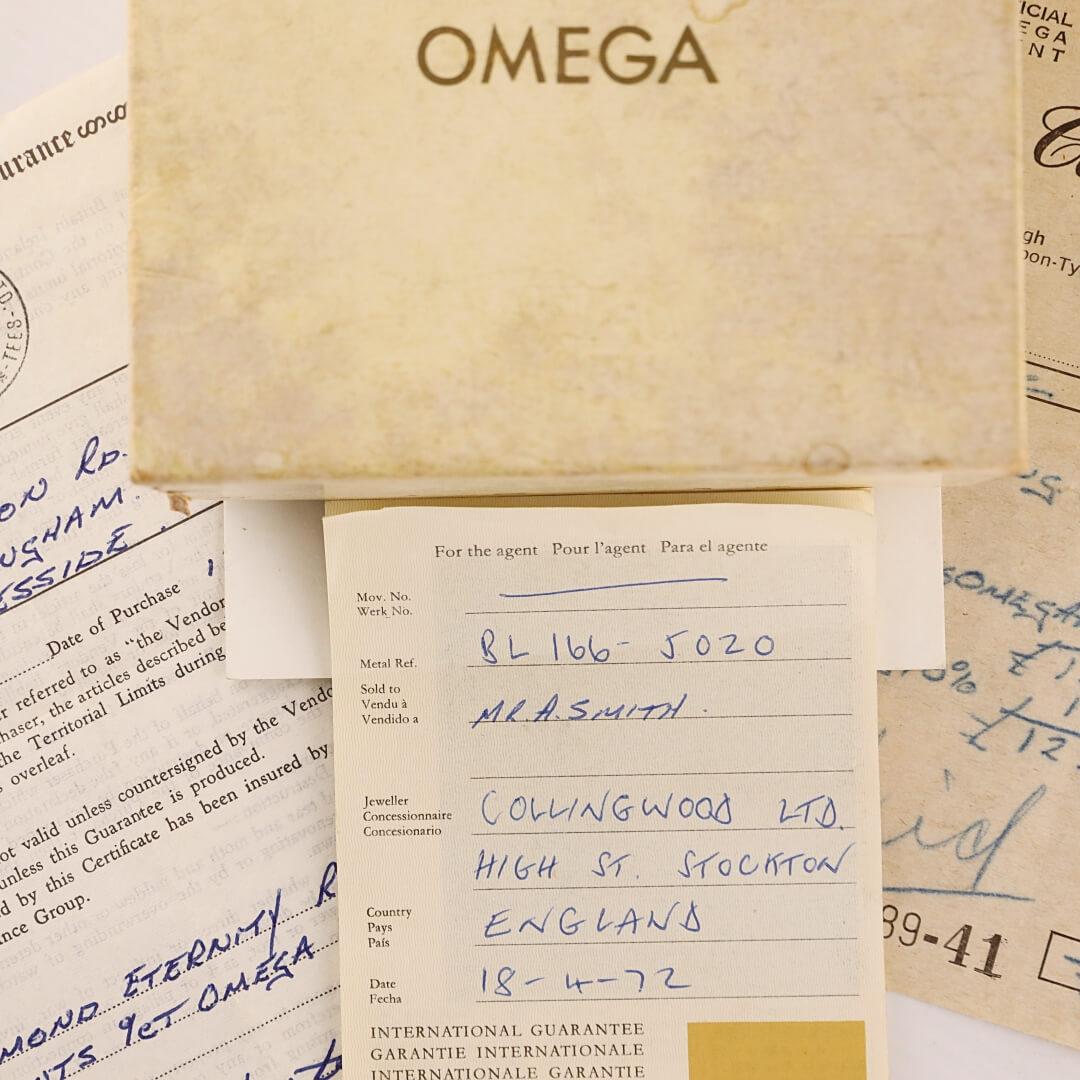 OMEGA
For the agent Pour l'agent Para el agente
Mov. No.
Werk No.
Metal Ref. BL 166-5020
Sold to
Vendu à
Vendido a MR. A. SMITH.
Jeweller
Concessionnaire COLLINGWOOD LTD.
Concesionario
HIGH ST. STOCKTON
Country
Pays ENGLAND
País
Date 18-4-72
Fecha
INTERNATIONAL GUARANTEE
GARANTIE INTERNATIONALE
INTERNATIONALE GARANTIE
TEES
RD.
Date of Purchase
referred to as "the Vendor
the articles described be
the Territorial Limits during
overleaf.
valid unless countersigned by the Vendo
unless this Guarantee is produced.
by this Certificate has been insured by
Group.
ETERNITY R
9CT OMEGA
OMEGA
39-41